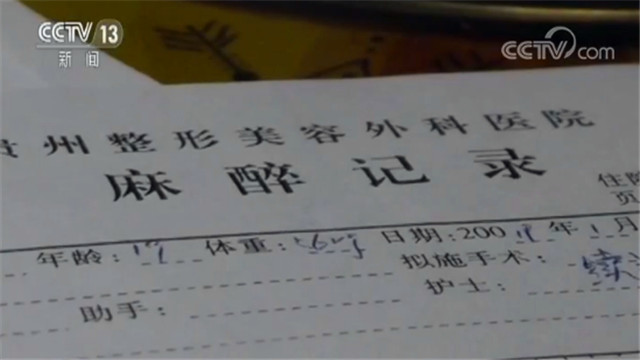 CCTV 13
新闻
CCTV.com
州整形美容外科医院
麻醉记录
住院
页
年龄: 体重: 日期:200 年1月
拟施手术:
助手: 护士: